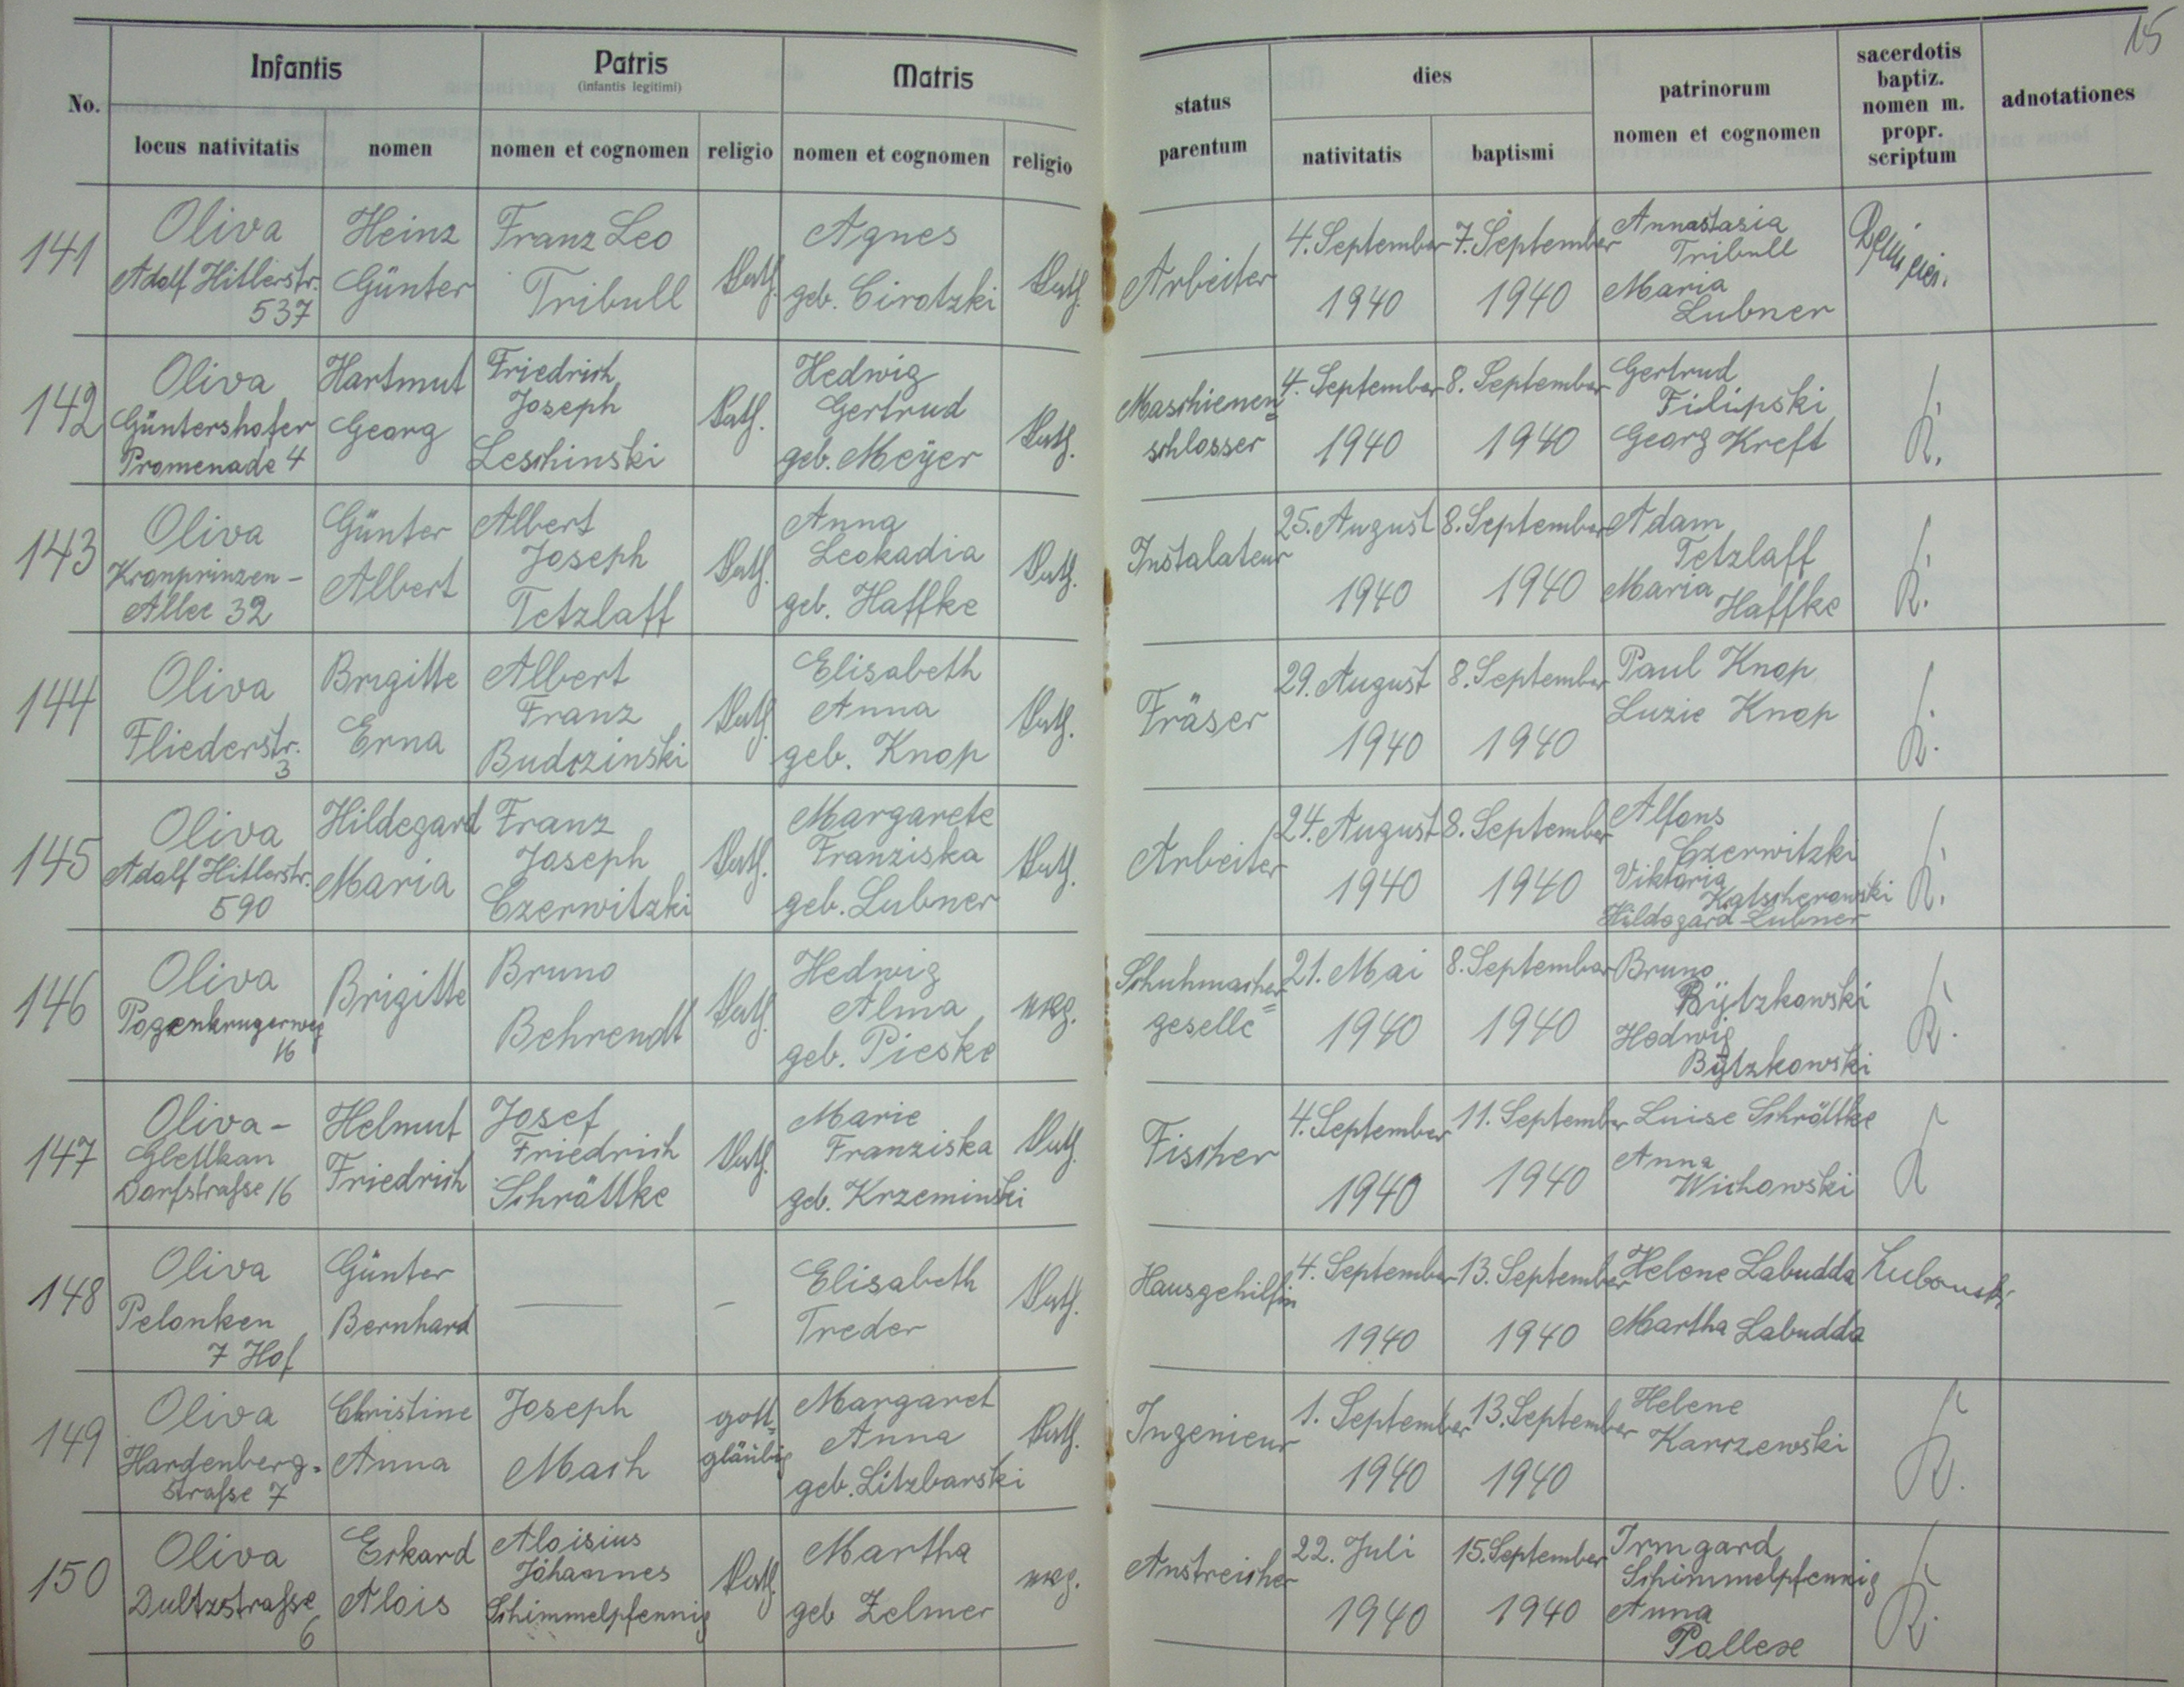 15
No.
Infantis
Patris
(infantis legitimi)
Matris
status parentum
dies
patrinorum
nomen et cognomen
sacerdotis
baptiz.
nomen m.
propr.
scriptum
adnotationes
locus nativitatis
nomen
nomen et cognomen
religio
nomen et cognomen
religio
nativitatis
baptismi
141
Oliva
Adolf Hitlerstr.
537
Heinz
Günter
Franz Leo
Tribull
kath.
Agnes
geb. Cirotzki
kath.
Arbeiter
4. September
1940
7. September
1940
Annastasia
Tribull
Maria
Lubner
142
Oliva
Güntershofer
Promenade 4
Hartmut
Georg
Friedrich
Joseph
Leschinski
kath.
Hedwig
Gertrud
geb. Meÿer
kath.
Maschienen=
schlosser
4. September
1940
8. September
1940
Gertrud
Filipski
Georg Kreft
K.
143
Oliva
Kronprinzen-
Allee 32
Günter
Albert
Albert
Joseph
Tetzlaff
kath.
Anna
Leokadia
geb. Haffke
kath.
Instalateur
25. August
1940
8. September
1940
Adam
Tetzlaff
Maria
Haffke
K.
144
Oliva
Fliederstr.
3
Brigitte
Erna
Albert
Franz
Budczinski
kath.
Elisabeth
Anna
geb. Knop
kath.
Fräser
29. August
1940
8. September
1940
Paul Knop
Luzie Knop
K.
145
Oliva
Adolf Hitlerstr.
590
Hildegard
Maria
Franz
Joseph
Czerwitzki
kath.
Margarete
Franziska
geb. Lubner
kath.
Arbeiter
24. August
1940
8. September
1940
Alfons
Czerwitzki
Viktoria
Katscherowski
Hildegard Lubner
K.
146
Oliva
Pogenkrugerweg
16
Brigitte
Bruno
Behrendt
kath.
Hedwig
Alma
geb. Pieske
evg.
Schuhmacher=
geselle
21. Mai
1940
8. September
1940
Bruno
Bÿtzkowski
Hedwig
Bÿtzkowski
K.
147
Oliva-
Glettkau
Dorfstraſse 16
Helmut
Friedrich
Josef
Friedrich
Schröttke
kath.
Marie
Franziska
geb. Krzeminski
kath.
Fischer
4. September
1940
11. September
1940
Luise Schröttke
Anna
Wichowski
K
148
Oliva
Pelonken
7 Hof
Günter
Bernhard
—
—
Elisabeth
Treder
kath.
Hausgehilfin
4. September
1940
13. September
1940
Helene Labudda
Martha Labudda
149
Oliva
Hardenberg-
straſse 7
Christine
Anna
Joseph
Mach
gott=
gläubig
Margaret
Anna
geb. Litzbarski
kath.
Ingenieur
1. September
1940
13. September
1940
Helene
Karczewski
K.
150
Oliva
Dultzstraſse
6
Erkard
Alois
Aloisius
Johannes
Schimmelpfennig
kath.
Martha
geb Zelmer
evg.
Anstreicher
22. Juli
1940
15. September
1940
Irmgard
Schimmelpfennig
Anna
Pallexe
K.